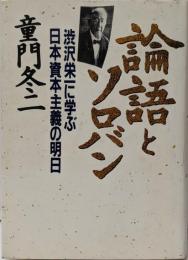 論語とソロバン
渋沢栄一に学ぶ
日本資本主義の明日
童門冬二